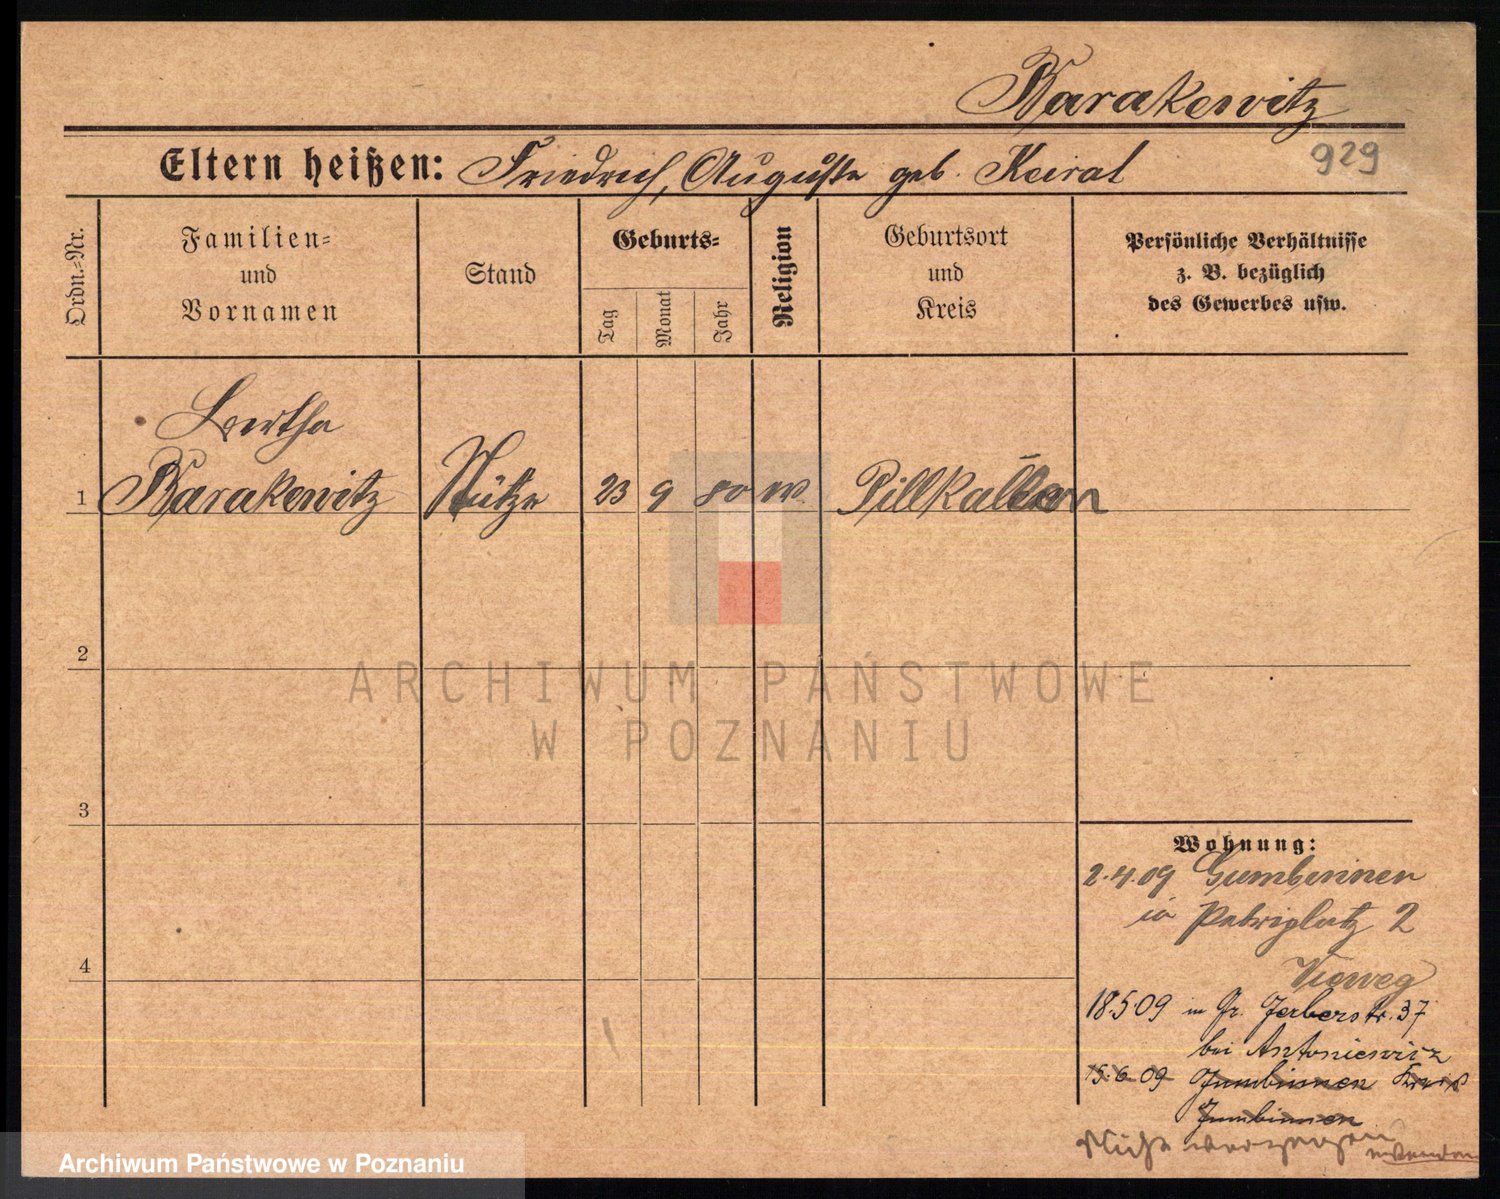 Barakewitz
Eltern heißen: Friedrich, Auguste geb. Keirat
929
Ordn.-Nr.
Familien-
und
Vornamen
Stand
Geburts-
Tag
Monat
Jahr
Religion
Geburtsort
und
Kreis
Persönliche Verhältnisse
z. B. bezüglich
des Gewerbes usw.
Bertha
1 Barakewitz Stütze 23 9 80 Pillkallen
2
ARCHIWUM PAŃSTWOWE
W POZNANIU
3
Wohnung:
2.4.09 Gumbinnen
in Petriplatz 2
Vieweg
4
18.5.09 in Gr. Gerberstr. 37
bei Antoniewicz
15.6.09 Gumbinnen Kreis
Gumbinnen
Nicht verzogen
Archiwum Państwowe w Poznaniu